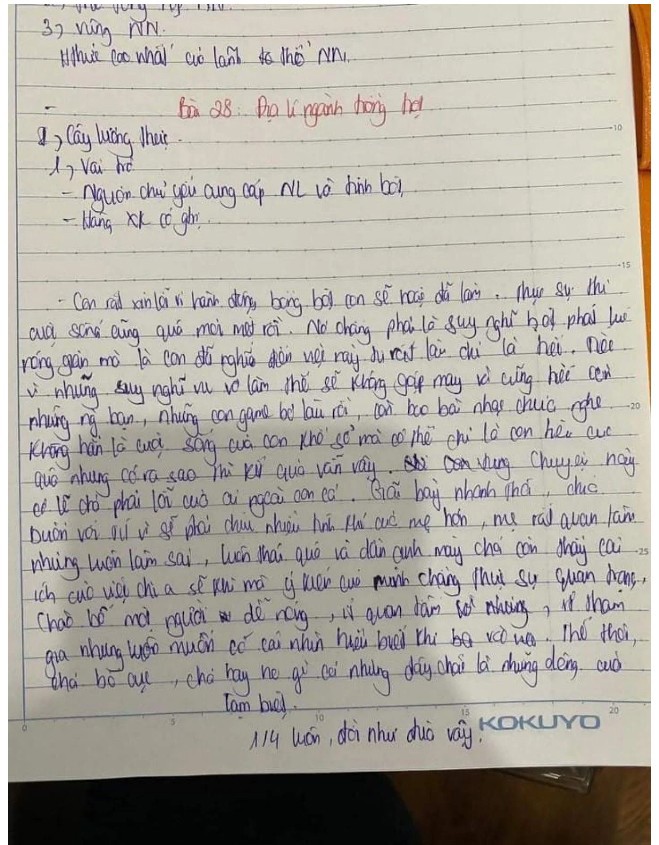 3, vùng NN.
Hthức cao nhất của lãnh thổ NN.
Bài 28: Địa lí ngành trồng trọt
I, Cây lương thực.
1, Vai trò
- Nguồn chủ yếu cung cấp NL và tinh bột,
- Hàng XK có giá trị.
10
15
- Con rất xin lỗi vì hành động bồng bột con sẽ hoặc đã làm. Thực sự thì
cuộc sống cũng quá mỏi mệt rồi. Nó chẳng phải là suy nghĩ bột phát lúc
nóng giận mà là con đã nghĩ đến việc này từ rất lâu chỉ là hèn.
vì những suy nghĩ vu vơ lắm thế sẽ không gặp may và cũng tiếc
những ng bạn, những con game bỏ lâu rồi, còn bao bài nhạc chưa nghe
20
Không hẳn là cuộc sống của con khổ sở mà có thể chỉ là con tiêu cực
quá nhưng có ra sao thì kq quả vẫn vậy. Con vung chuyện này
có lẽ chả phải lỗi của ai ngoài con cả. Giãi bày nhanh thôi, chắc
buồn vời vợi vì sẽ phải chịu nhiều tính khí của mẹ hơn, mẹ rất quan tâm
nhưng luôn làm sai, luôn thái quá và dần dà mấy chả còn thấy cái
25
ích của việc chia sẻ khi mà ý kiến của mình chẳng thực sự quan trọng.
Chào bố một người dễ nóng, ít quan tâm hơn nhưng, ít tham
gia nhưng luôn muốn có cái nhìn hiểu biết khi Thế thôi,
chả bố cục, chả hay ho gì cả nhưng đây chai là những dòng cuối
tạm biệt.
1/4 luôn, đời như đùa vậy.
0
5
10
15
20
KOKUYO